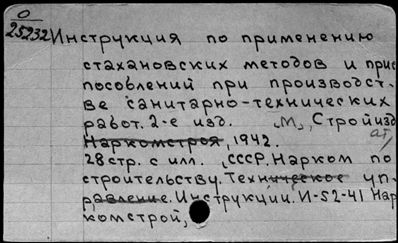 О
25232 Инструкция по применению
стахановских методов и прис
пособлений при производст-
ве санитарно-технических
работ. 2-е изд. „М„ Стройизд
ат,
Наркомстроя, 1942.
28 стр. с илл. (СССР. Нарком по
строительству. Техническое уп-
равление. Инструкции. И-52-41 Нар
комстрой,